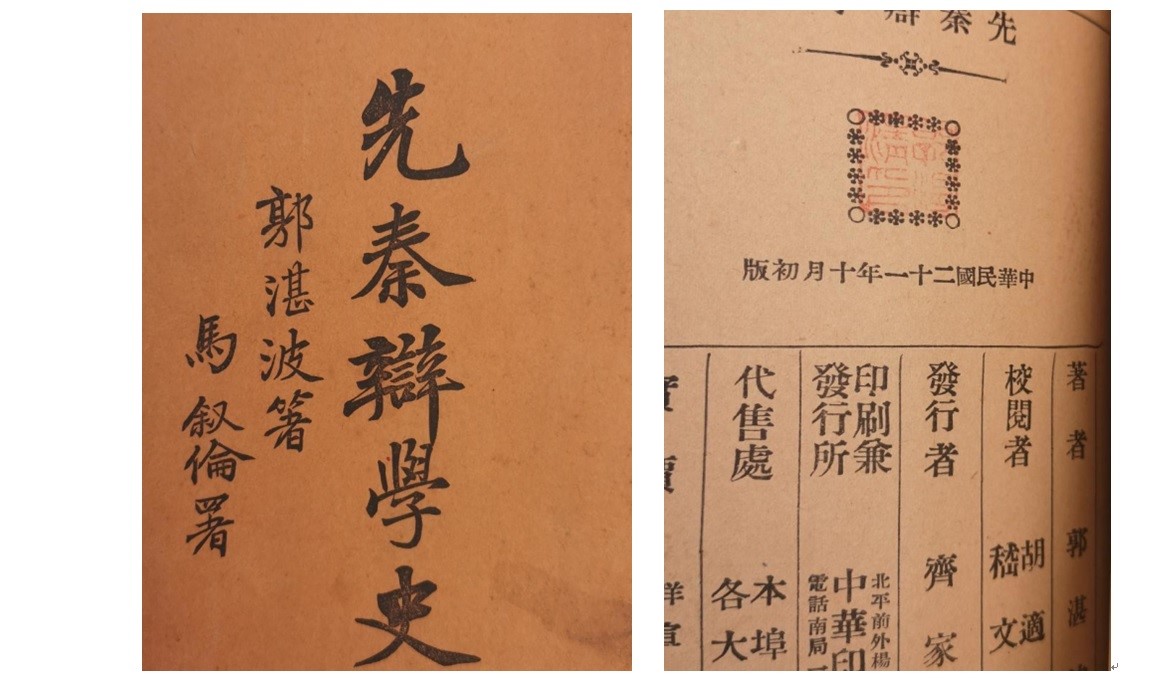 先秦辯學史
郭湛波箸
馬叙倫署
先秦
中華民國二十一年十月初版
著者 郭湛
校閱者 胡適
嵇文
發行者 齊家
印刷兼
發行所
北平前外楊
中華印
電話南局
代售處 本埠
各大